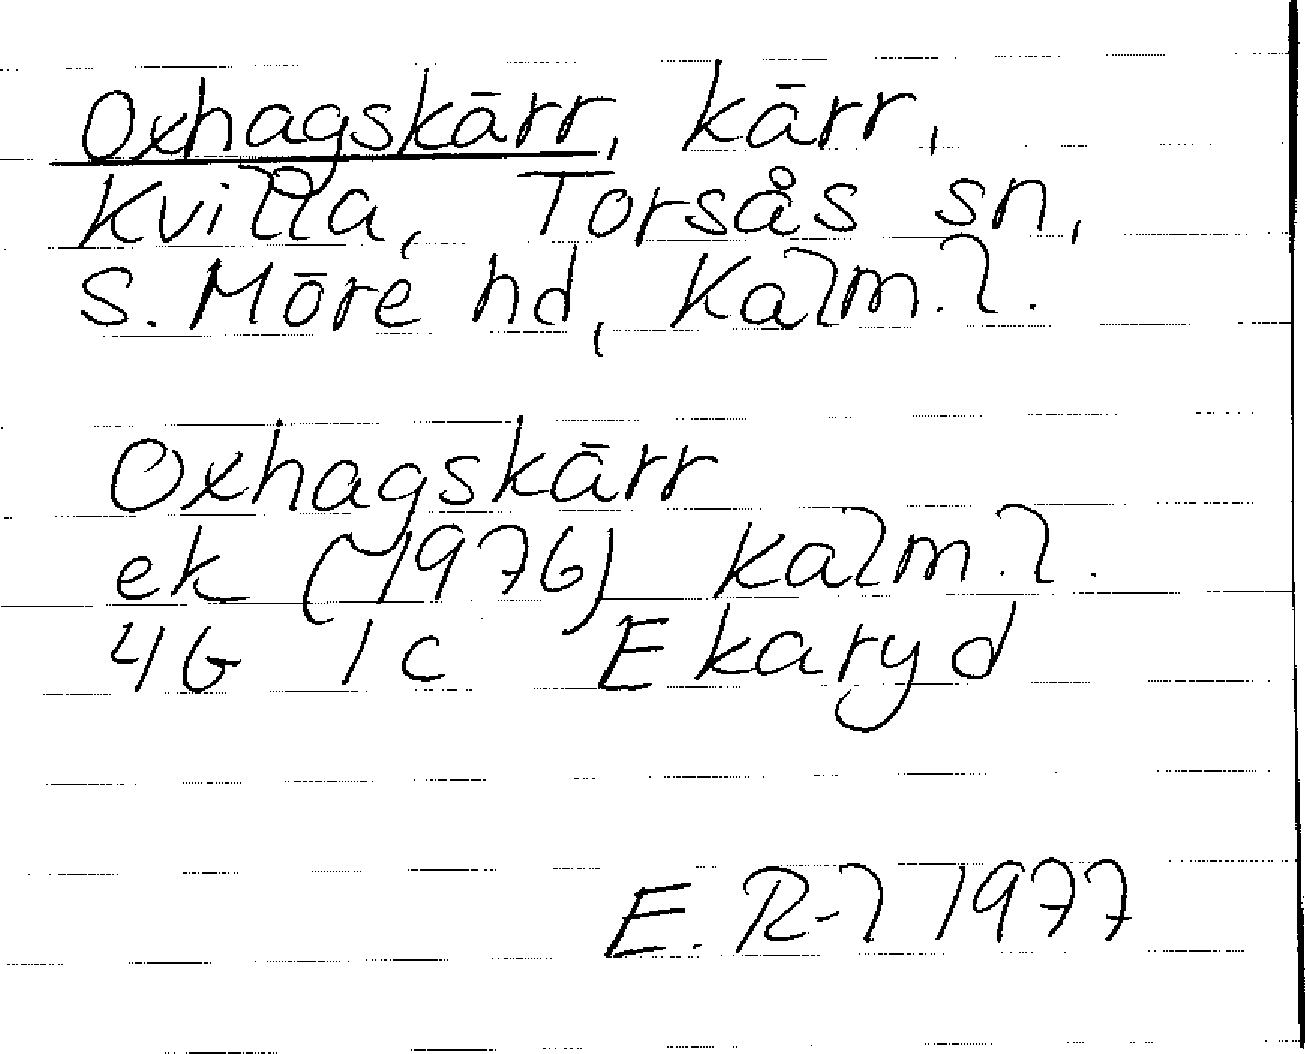 Oxhagskärr, kärr,
Kvilla, Torsås sn,
S. Möre hd, Kalm. l.
Oxhagskärr
ek (~1976) Kalm. l.
4G 1c Ekaryd
E. R-l 1977